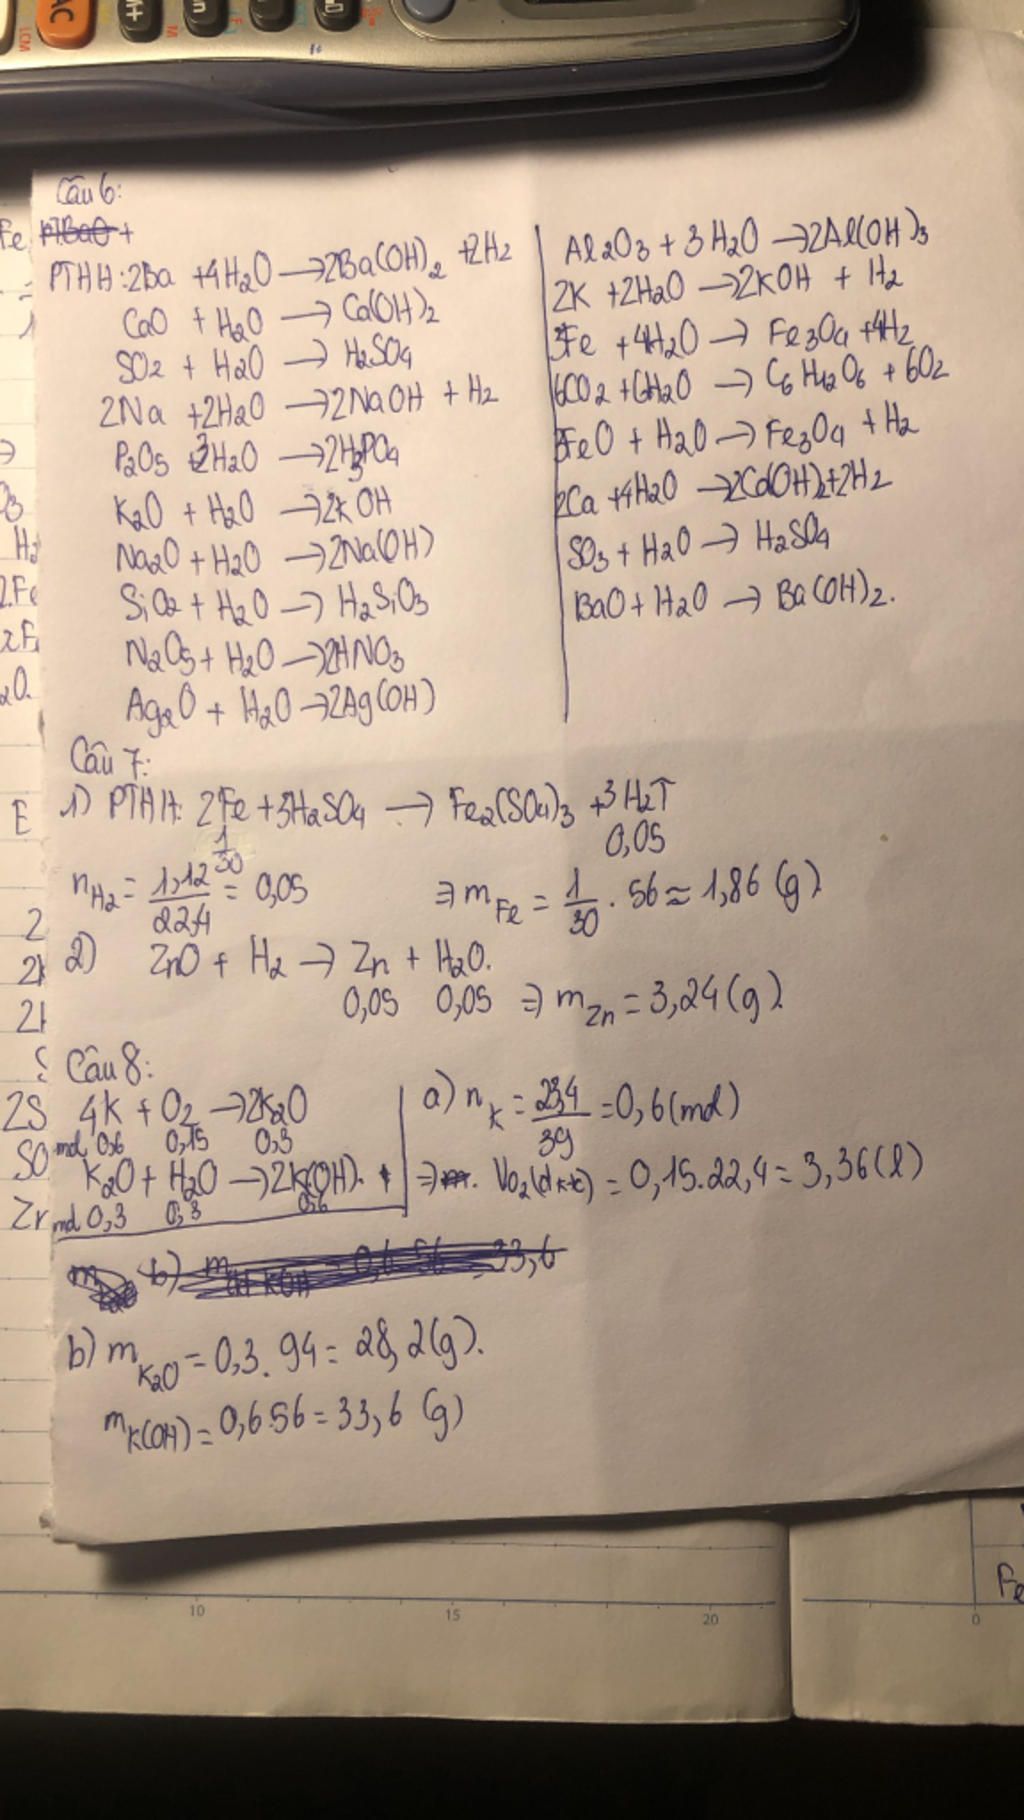 Câu 6:
PTHH: 2Ba + 4H₂O → 2Ba(OH)₂ + 2H₂
CaO + H₂O → Ca(OH)₂
SO₂ + H₂O → H₂SO₄
2Na + 2H₂O → 2NaOH + H₂
P₂O₅ + 3H₂O → 2H₃PO₄
K₂O + H₂O → 2KOH
Na₂O + H₂O → 2Na(OH)
SiO₂ + H₂O → H₂SiO₃
N₂O₅ + H₂O → 2HNO₃
Ag₂O + H₂O → 2Ag(OH)
Al₂O₃ + 3H₂O → 2Al(OH)₃
2K + 2H₂O → 2KOH + H₂
3Fe + 4H₂O → Fe₃O₄ + 4H₂
6CO₂ + 6H₂O → C₆H₁₂O₆ + 6O₂
3FeO + H₂O → Fe₃O₄ + H₂
2Ca + 4H₂O → 2Ca(OH)₂ + 2H₂
SO₃ + H₂O → H₂SO₄
BaO + H₂O → Ba(OH)₂.
Câu 7:
1) PTHH: 2Fe + 3H₂SO₄ → Fe₂(SO₄)₃ + 3H₂↑
1/30 0,05
nH₂ = 1,12/22,4 = 0,05 ⇒ mFe = 1/30 . 56 ≈ 1,86 (g)
2) ZnO + H₂ → Zn + H₂O.
0,05 0,05 ⇒ mZn = 3,24 (g).
Câu 8:
4K + O₂ → 2K₂O
mol 0,6 0,15 0,3
K₂O + H₂O → 2K(OH).
mol 0,3 0,3 0,6
a) nK = 23,4/39 = 0,6 (mol)
⇒ VO₂(đktc) = 0,15.22,4 = 3,36 (l)
b) mK₂O = 0,3 . 94 = 28,2 (g).
mK(OH) = 0,6.56 = 33,6 (g)
10 15 20 0
Fe